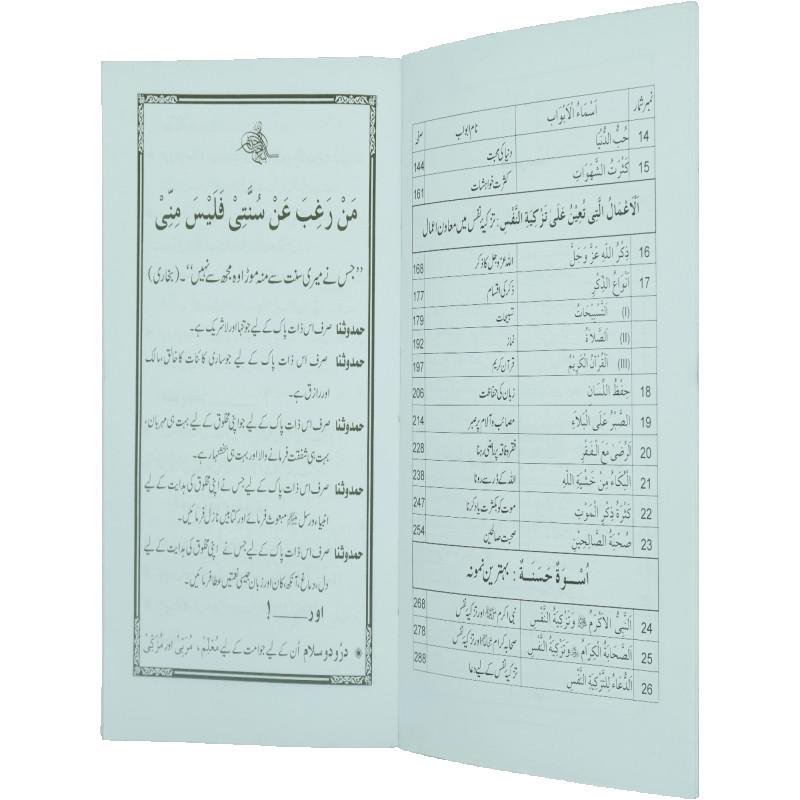 نمبر شمار اَسْمَاءُ الْاَبْوَاب نام ابواب صفحہ
14 حُبُّ الدُّنْيَا دنیا کی محبت 144
15 كَثْرَتُ الشَّهَوَاتِ کثرت خواہشات 161
اَلْاَعْمَالُ الَّتِىْ تُعِيْنُ عَلٰى تَزْكِيَةِ النَّفْسِ : تزکیۂ نفس میں معاون اعمال
16 ذِكْرُ اللّٰهِ عَزَّ وَجَلَّ اللہ عزوجل کا ذکر 168
17 اَنْوَاعُ الذِّكْرِ ذکر کی اقسام 177
(I) اَلتَّسْبِيْحَاتُ تسبیحات 179
(II) اَلصَّلَاةُ نماز 192
(III) اَلْقُرْآنُ الْكَرِيْمُ قرآن کریم 197
18 حِفْظُ اللِّسَانِ زبان کی حفاظت 206
19 اَلصَّبْرُ عَلَى الْبَلَاءِ مصائب و آلام پر صبر 214
20 اَلرِّضٰى مَعَ الْفَقْرِ فقر و فاقہ پر راضی رہنا 228
21 اَلْبُكَاءُ مِنْ خَشْيَةِ اللّٰهِ اللہ کے ڈر سے رونا 238
22 كَثْرَةُ ذِكْرِ الْمَوْتِ موت کو بکثرت یاد کرنا 247
23 صُحْبَةُ الصَّالِحِيْنِ صحبت صالحین 254
اُسْوَةٌ حَسَنَةٌ : بہترین نمونہ
24 اَلنَّبِىُّ الْاَكْرَمُ ﷺ وَتَزْكِيَةُ النَّفْسِ نبی اکرم ﷺ اور تزکیۂ نفس 268
25 اَلصَّحَابَةُ الْكِرَامُ وَتَزْكِيَةُ النَّفْسِ صحابہ کرام اور تزکیۂ نفس 278
26 اَلدُّعَاءُ لِلتَّزْكِيَةِ النَّفْسِ تزکیۂ نفس کے لیے دعا 288
مَنْ رَغِبَ عَنْ سُنَّتِىْ فَلَيْسَ مِنِّىْ
”جس نے میری سنت سے منہ موڑا وہ مجھ سے نہیں“۔ (بخاری)
حمد و ثنا صرف اس ذات پاک کے لیے جو تنہا اور لاشریک ہے۔
حمد و ثنا صرف اس ذات پاک کے لیے جو ساری کائنات کا خالق، مالک
اور رازق ہے۔
حمد و ثنا صرف اس ذات پاک کے لیے جو اپنی مخلوق کے لیے بہت ہی مہربان،
بہت ہی شفقت فرمانے والا اور بہت ہی بخشنہار ہے۔
حمد و ثنا صرف اس ذات پاک کے لیے جس نے اپنی مخلوق کی ہدایت کے لیے
انبیاء اور رسل ﷺ مبعوث فرمائے اور کتابیں نازل فرمائیں۔
حمد و ثنا صرف اس ذات پاک کے لیے جس نے اپنی مخلوق کی ہدایت کے لیے
دل، دماغ، آنکھ، کان اور زبان جیسی نعمتیں عطا فرمائیں۔
اور ــــــ !
٭ درود و سلام اُن کے لیے جو امت کے لیے مُعَلِّم، مُرَبِّی اور مُزَکِّی